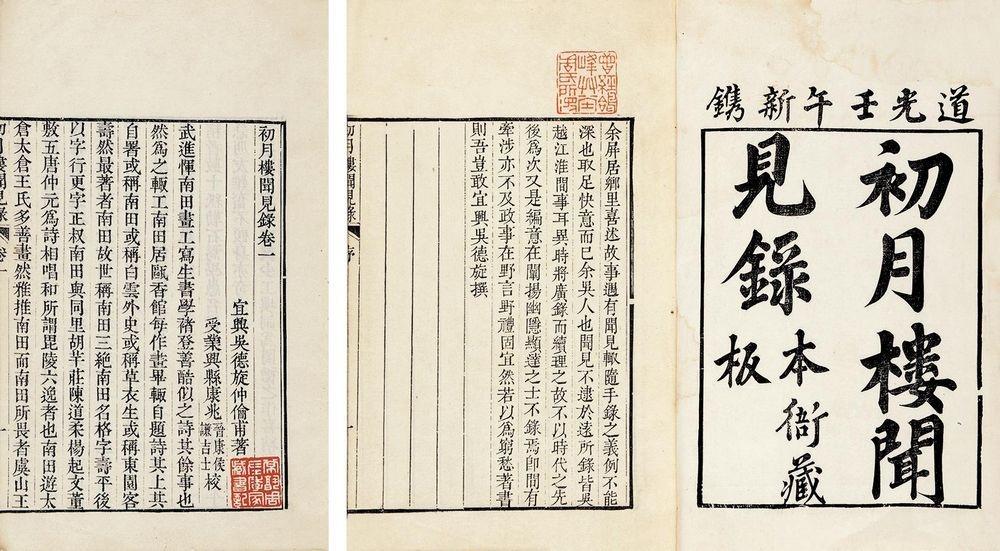 道光壬午新鐫
初月樓聞
見錄
本衙藏
板
余屏居鄉里喜述故事遇有聞見輒隨手錄之義例不能
深也取足快意而已余吳人也聞見不逮於遠所錄皆吳
越江淮間事耳異時將廣錄而續理之故不以時代之先
後為次又是編意在闡揚幽隱顯達之士不錄焉卽間有
牽涉亦不及政事在野言野禮固宜然若以為窮愁著書
則吾豈敢宜興吳德旋撰
初月樓聞見錄 序
初月樓聞見錄卷一
宜興吳德旋仲倫甫著
受業興縣康兆晉康侯謙吉士校
武進惲南田畫工寫生書學褚登善酷似之詩其餘事也
然為之輒工南田居甌香館每作畫畢輒自題詩其上其
自署或稱南田或稱白雲外史或稱草衣生或稱東園客
壽然最著者南田故世稱南田三絶南田名格字壽平後
以字行更字正叔南田與同里胡芋莊陳道柔楊起文董
敷五唐仲元為詩相唱和所謂毘陵六逸者也南田遊太
倉太倉王氏多善畫然雅推南田而南田所畏者虞山王
初月樓聞見錄 卷一